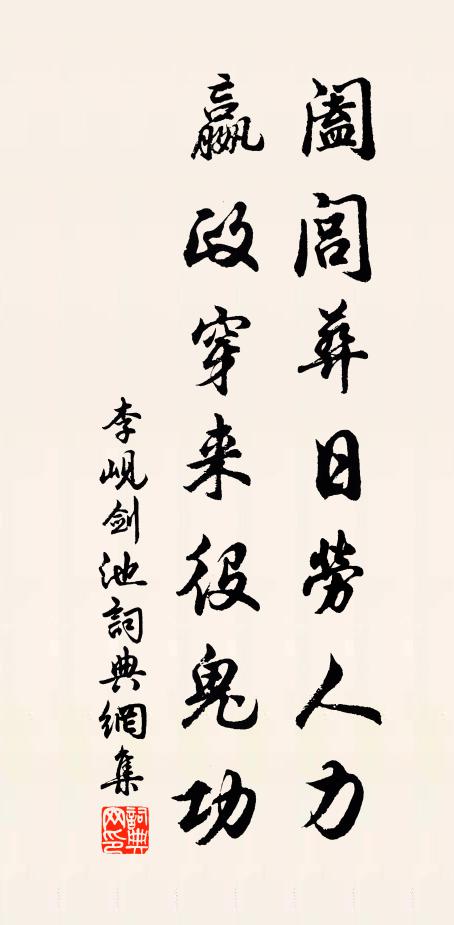 阖闾葬日劳人力
嬴政穿来役鬼功
李岘剑池詞典網集
詞典网印